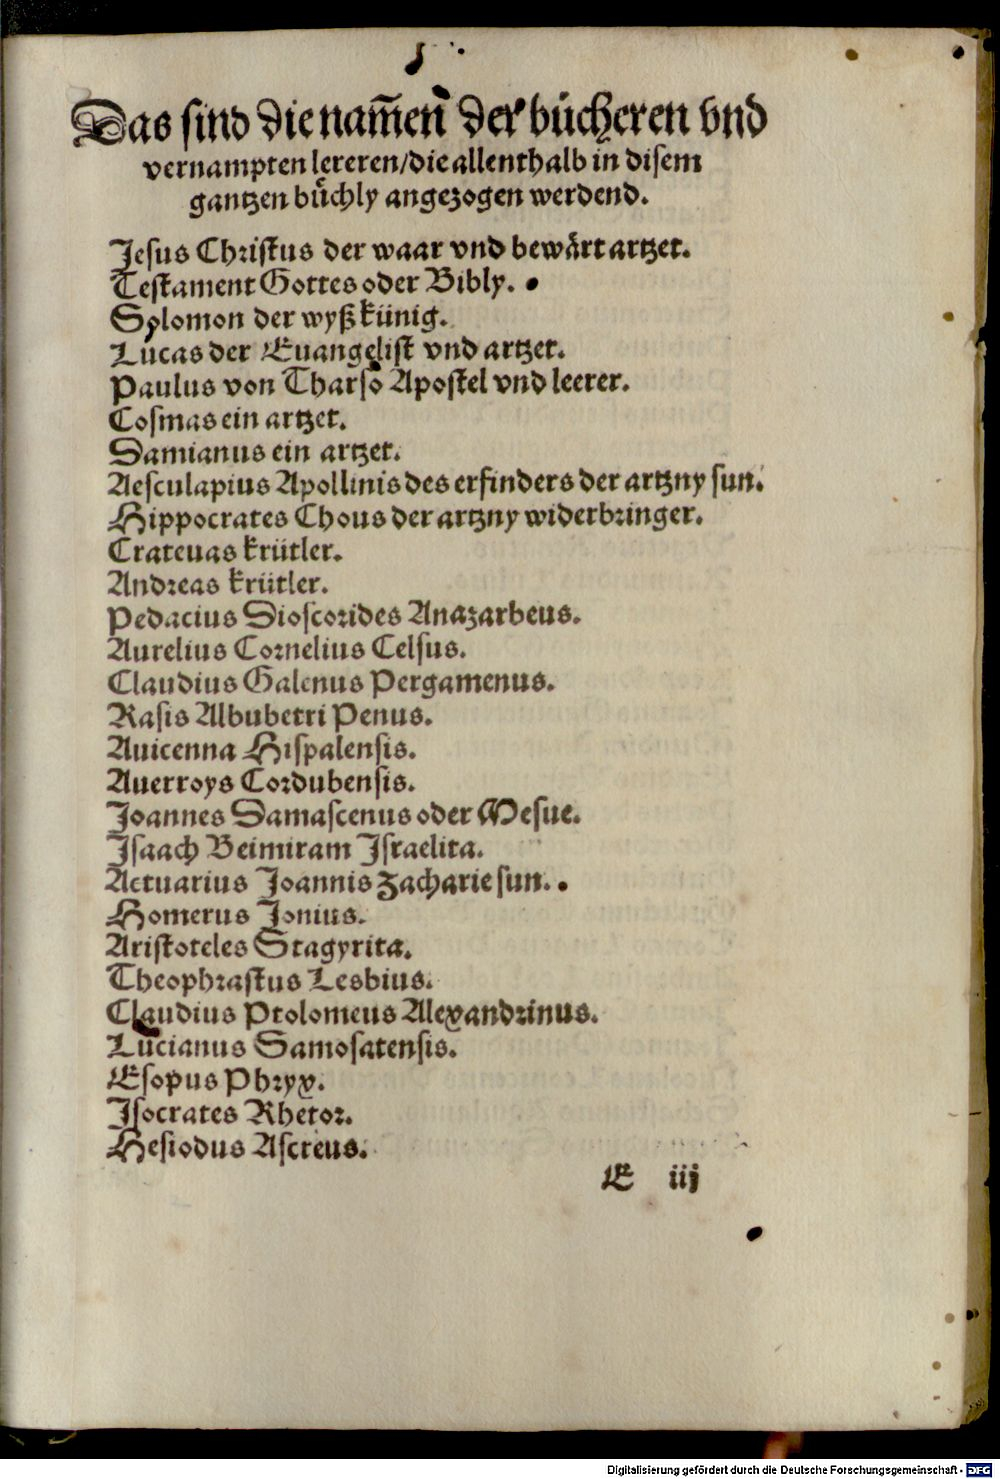 Das sind die nam̄en der bücheren vnd
vernampten lereren/die allenthalb in disem
gantzen bůchly angezogen werdend.
Jesus Christus der waar vnd bewårt artzet.
Testament Gottes oder Bibly.
Solomon der wyß künig.
Lucas der Euangelist vnd artzet.
Paulus von Tharso Apostel vnd leerer.
Cosmas ein artzet.
Damianus ein artzet.
Aesculapius Apollinis des erfinders der artzny sun.
Hippocrates Chous der artzny widerbringer.
Crateuas krütler.
Andreas krütler.
Pedacius Dioscorides Anazarbeus.
Aurelius Cornelius Celsus.
Claudius Galenus Pergamenus.
Rasis Albubetri Penus.
Auicenna Hispalensis.
Auerroys Cordubensis.
Joannes Damascenus oder Mesue.
Isaach Beimiram Israelita.
Actuarius Joannis Zacharie sun.
Homerus Jonius.
Aristoteles Stagyrita.
Theophrastus Lesbius.
Claudius Ptolomeus Alexandrinus.
Lucianus Samosatensis.
Esopus Phryx.
Isocrates Rhetor.
Hesiodus Ascreus.
E iij
Digitalisierung gefördert durch die Deutsche Forschungsgemeinschaft - DFG